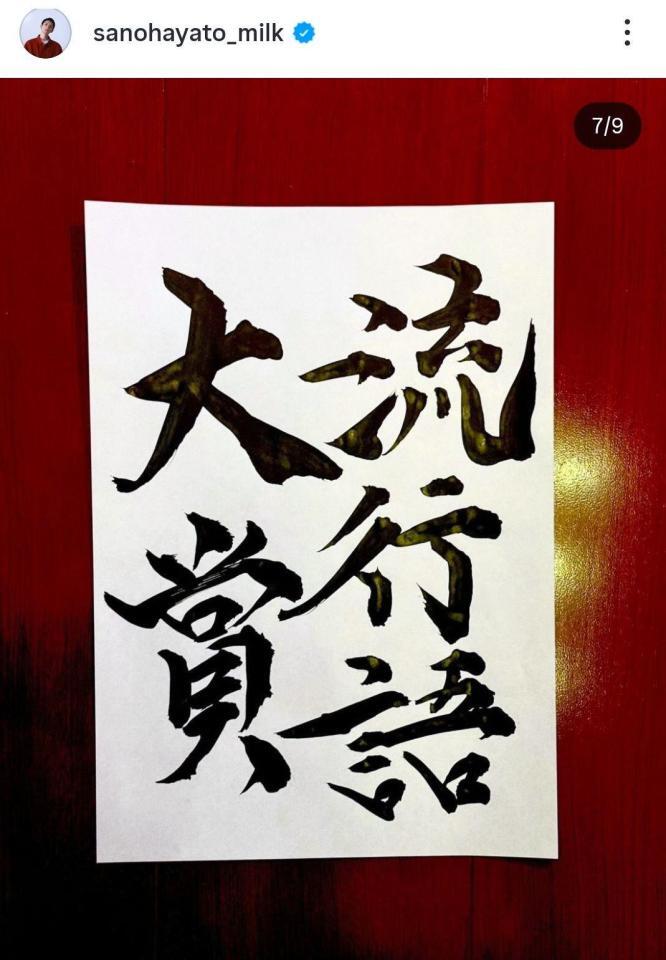 sanohayato_milk
7/9
流行語
大賞